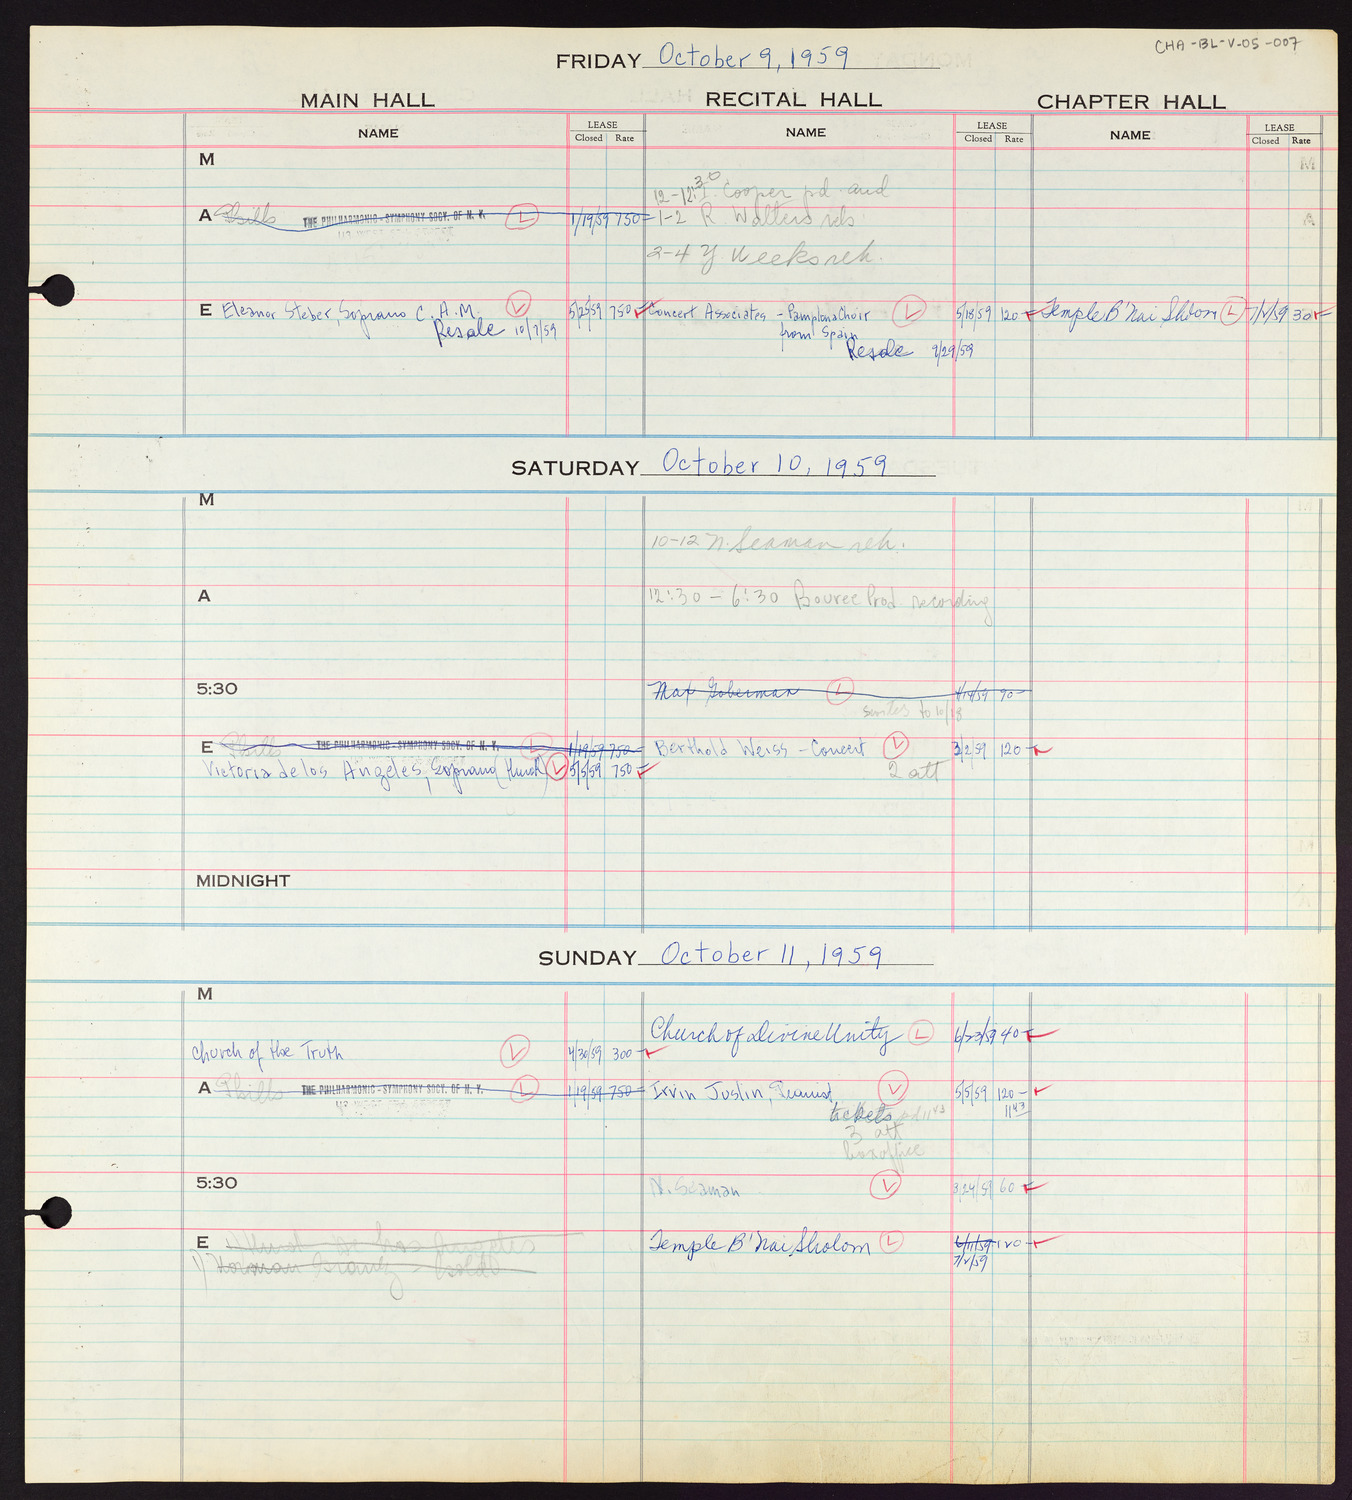 CHA-BL-V-05-007
FRIDAY October 9, 1959
MAIN HALL RECITAL HALL CHAPTER HALL
NAME LEASE Closed Rate NAME LEASE Closed Rate NAME LEASE Closed Rate
M
12-12:30 Cooper pd. aud
A Phills THE PHILHARMONIC-SYMPHONY SOCY. OF N. Y. L 1/19/59 750- 1-2 R. Walters reh
2-4 Y. Weeks reh.
E Eleanor Steber, Soprano C.A.M. V 5/25/59 750 Concert Associates - Pamplona Choir V 5/18/59 120 Temple B'Nai Sholom L 7/1/59 30
Resale 10/7/59 from Spain
Resale 9/29/59
SATURDAY October 10, 1959
M
10-12 N. Seaman reh.
A 12:30 - 6:30 Bouree Prod. recording
5:30 Max Goberman L 4/14/59 90-
switch to 10/18
E Phills THE PHILHARMONIC-SYMPHONY SOCY. OF N. Y. L 1/19/59 750- Berthold Weiss - Concert V 3/2/59 120
Victoria de los Angeles, Soprano (Hurok) V 5/5/59 750 2 att
MIDNIGHT
SUNDAY October 11, 1959
M
Church of Divine Unity L 6/23/59 40
Church of the Truth V 4/30/59 300
A Phills THE PHILHARMONIC-SYMPHONY SOCY. OF N. Y. L 1/19/59 750- Irvin Justin, Pianist V 5/5/59 120-
tickets pd 11 43 11 43
3 att
box office
5:30 N. Seaman V 3/24/59 60
E Hurok de los Angeles Temple B'Nai Sholom L 6/11/59 120
1) Norman Granz - hold 7/1/59